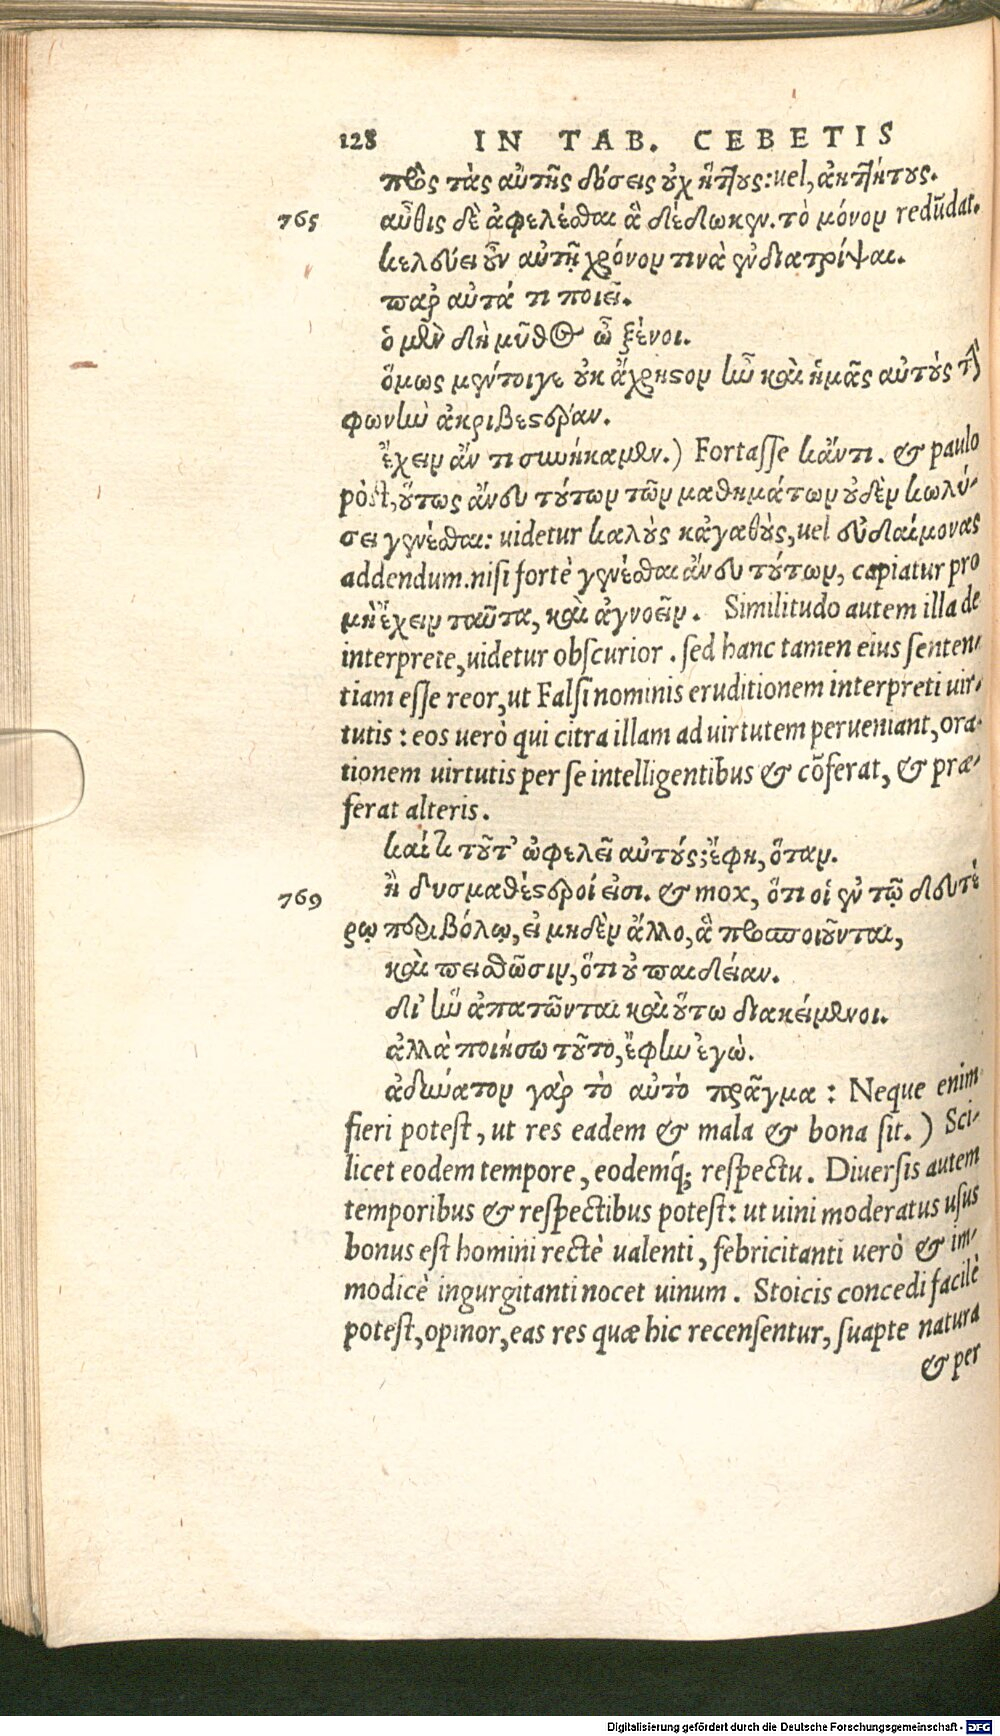 128 IN TAB. CEBETIS
πρὸς τὰς αὐτῆς δόσεις οὐχ ἥττους: uel, ἀηττήτους.
765 αὖθις δὲ ἀφελέσθαι ἃ δέδωκεν. τὸ μόνον redūdat.
κελεύει οὖν αὐτῇ χρόνον τινὰ ἐνδιατρίψαι.
παρ αὐτά τι ποιεῖ.
ὁ μὲν δὴ μῦθος ὦ ξένοι.
ὅμως μέντοιγε οὐκ ἄχρηστον ἦν καὶ ἡμᾶς αὐτοὺς τὴν
φωνὴν ἀκριβεστέραν.
ἔχειν ἄν τι συνήκαμεν.) Fortaſſe κἄντι. & paulo
pòſt, οὕτως ἄνευ τούτων τῶν μαθημάτων οὐδὲν κωλύ-
σει γενέσθαι: uidetur καλοὺς κἀγαθοὺς, uel εὐδαίμονας
addendum. niſi fortè γενέσθαι ἄνευ τούτων, capiatur pro
μὴ ἔχειν ταῦτα, καὶ ἀγνοεῖν. Similitudo autem illa de
interprete, uidetur obſcurior. ſed hanc tamen eius ſenten-
tiam eſſe reor, ut Falſi nominis eruditionem interpreti uir-
tutis: eos uerò qui citra illam ad uirtutem perueniant, ora-
tionem uirtutis per ſe intelligentibus & cōferat, & præ-
ferat alteris.
καί τοῦτ᾽ ὠφελεῖ αὐτούς; ἔφη, ὅταν.
769 ἢ δυσμαθέστεροί εἰσι. & mox, ὅτι οἱ ἐν τῷ δευτέ
ρῳ περιβόλῳ, εἰ μηδὲν ἄλλο, ἃ προσποιοῦνται,
καὶ πεισθῶσιν, ὅτι οὐ παιδείαν.
δι᾽ ἣν ἀπατῶνται καὶ οὕτω διακείμενοι.
ἀλλὰ ποιήσω τοῦτο, ἔφην ἐγώ.
ἀδύνατον γὰρ τὸ αὐτὸ πρᾶγμα: Neque enim
fieri poteſt, ut res eadem & mala & bona ſit.) Sci-
licet eodem tempore, eodemq́; reſpectu. Diuerſis autem
temporibus & reſpectibus poteſt: ut uini moderatus uſus
bonus eſt homini rectè ualenti, febricitanti uerò & im-
modicè ingurgitanti nocet uinum. Stoicis concedi facilè
poteſt, opinor, eas res quæ hic recenſentur, ſuapte natura
& per
Digitalisierung gefördert durch die Deutsche Forschungsgemeinschaft - DFG